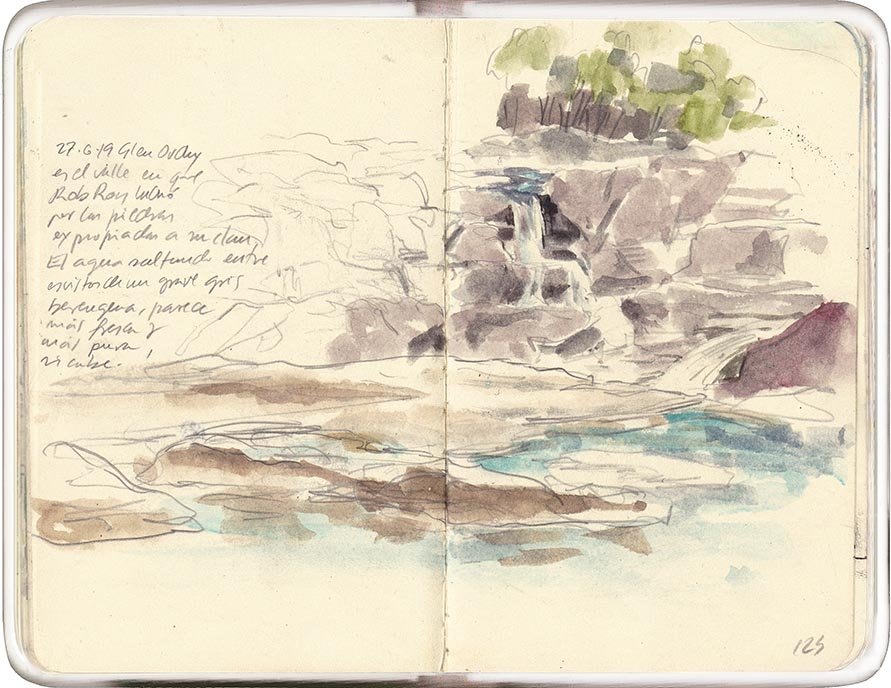 27.6.19 Glen Orchy
es el valle en que
Rob Roy luchó
por las piedras
expropiadas a su clan.
El agua saltando entre
esquistos de un grave gris
berengena, parece
más fresca y
más pura,
si cabe.
125